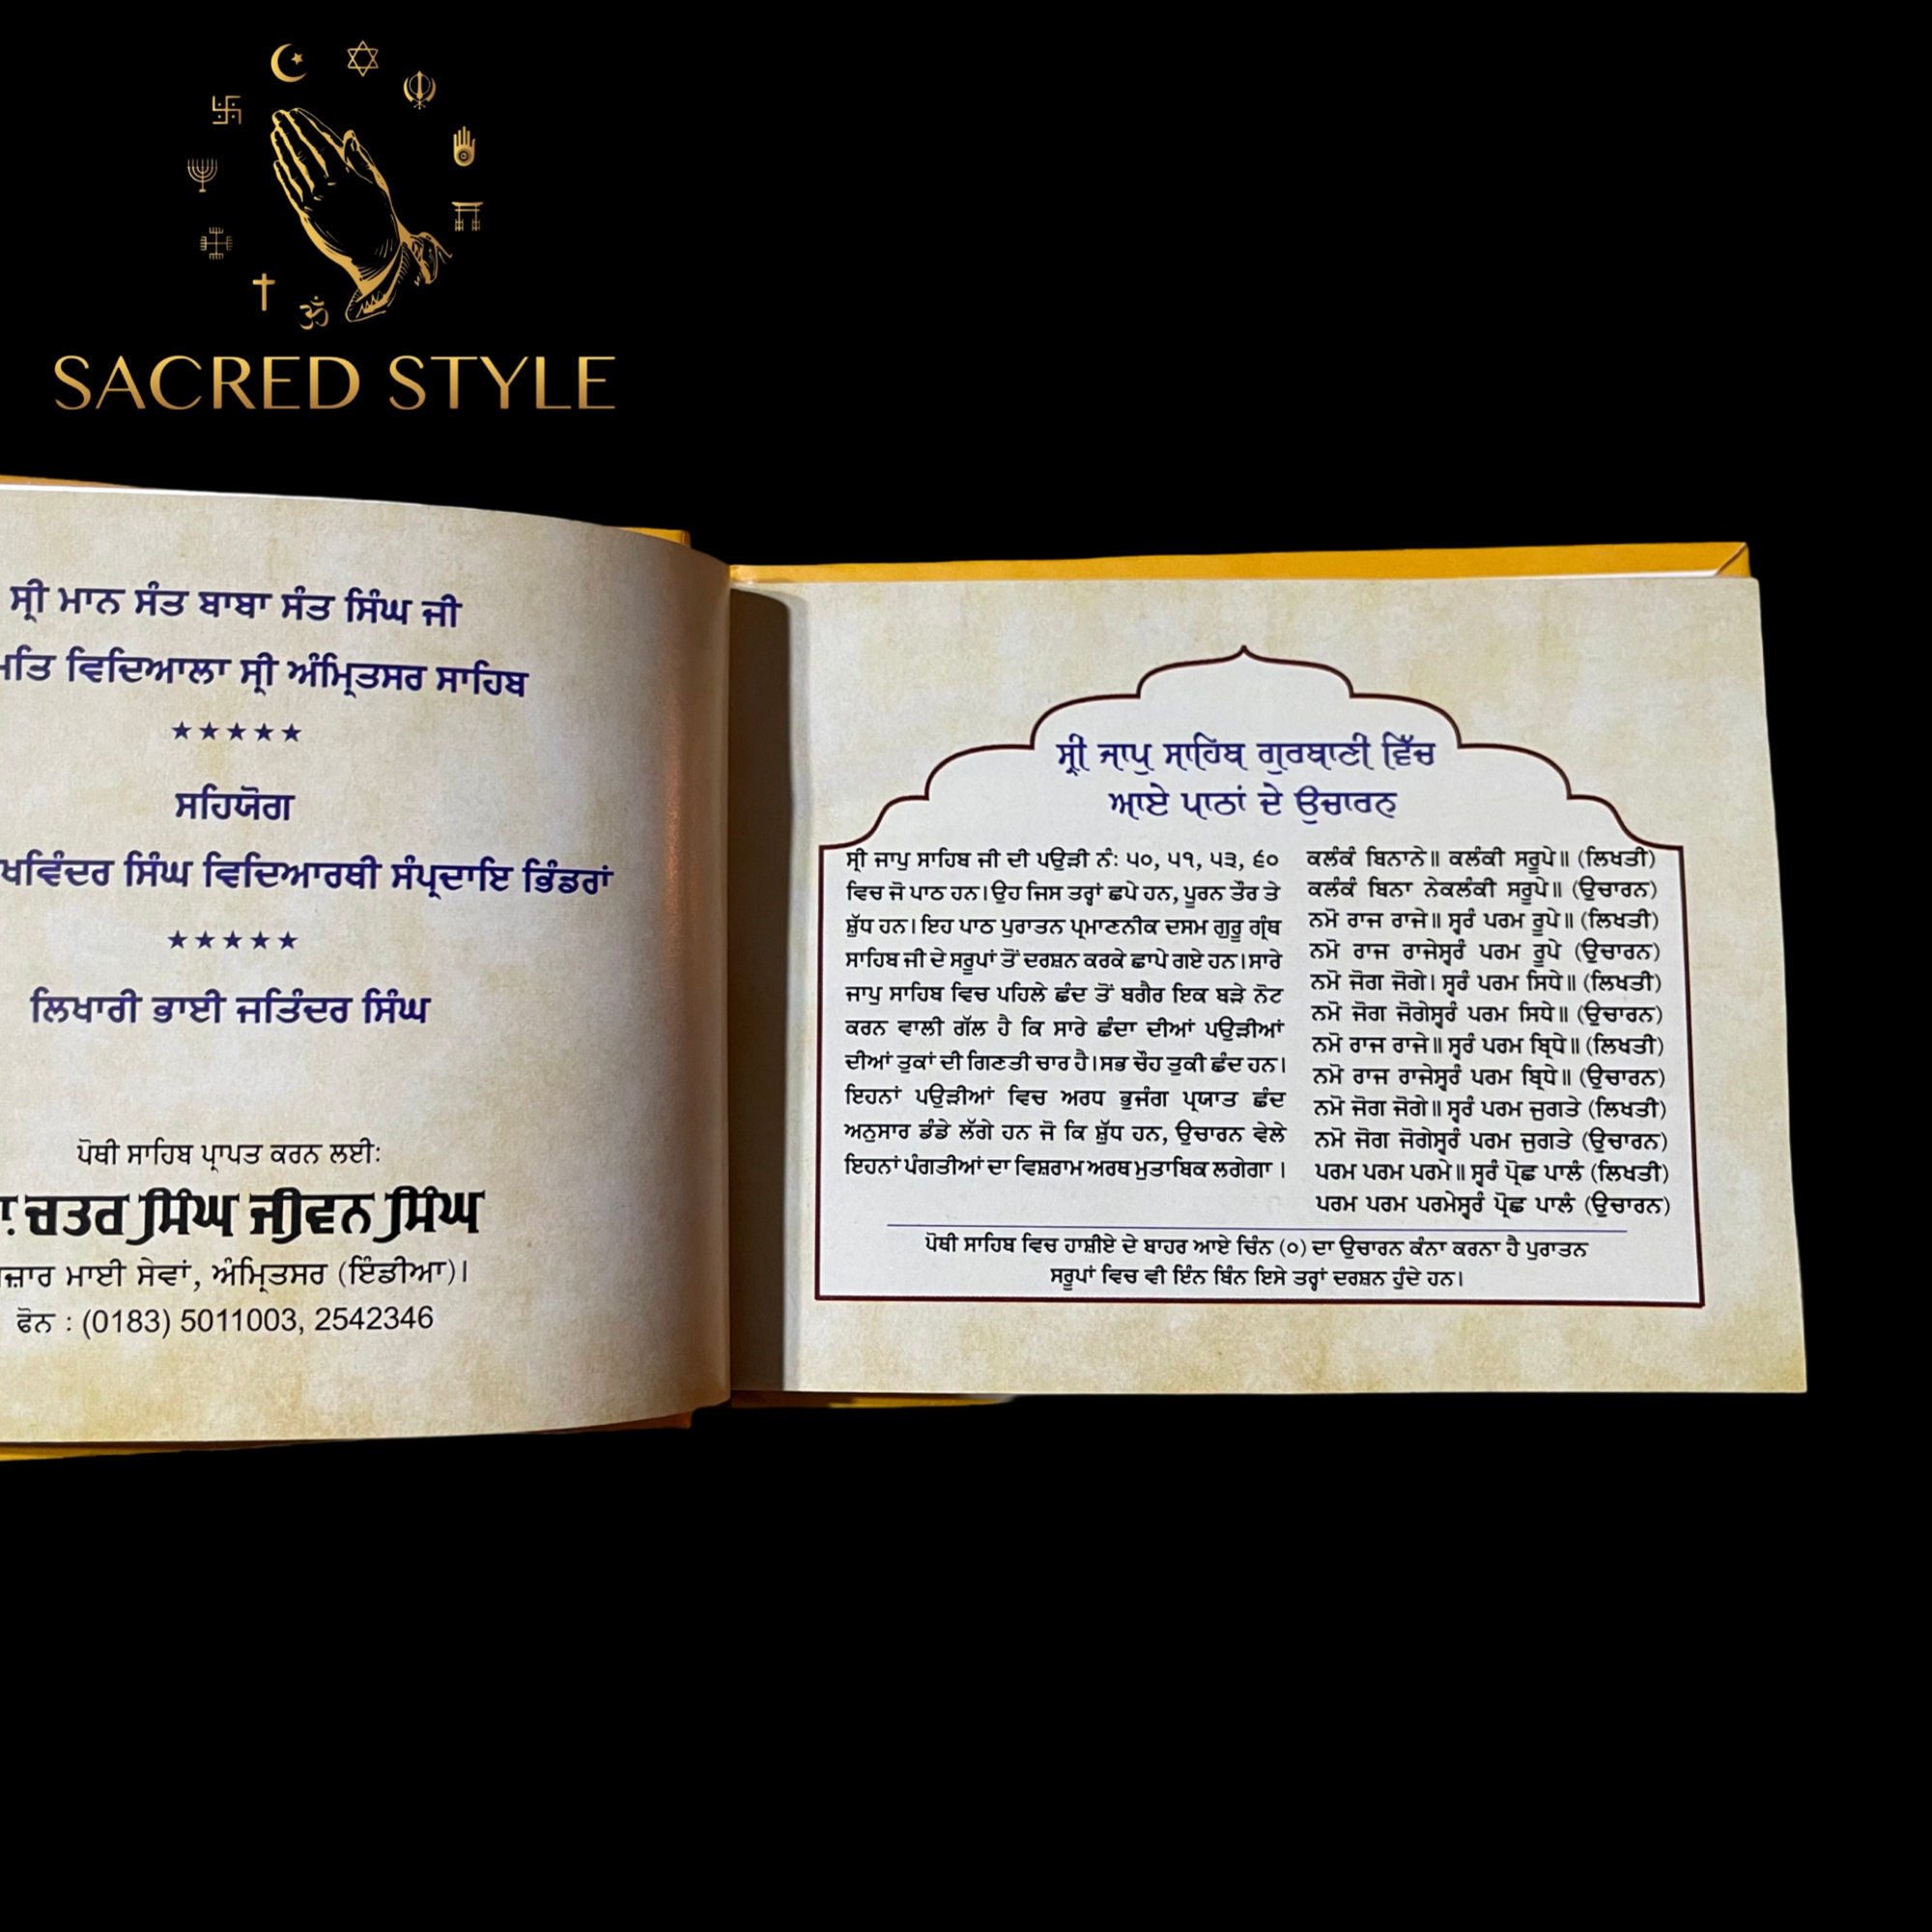 SACRED STYLE
ਸ੍ਰੀ ਮਾਨ ਸੰਤ ਬਾਬਾ ਸੰਤ ਸਿੰਘ ਜੀ
ਵਿਦਿਆਲਾ ਸ੍ਰੀ ਅੰਮ੍ਰਿਤਸਰ ਸਾਹਿਬ
★★★★★
ਸਹਿਯੋਗ
ਸਿੰਘ ਵਿਦਿਆਰਥੀ ਸੰਪ੍ਰਦਾਇ ਭਿੰਡਰਾਂ
★★★★★
ਲਿਖਾਰੀ ਭਾਈ ਜਤਿੰਦਰ ਸਿੰਘ
ਪੋਥੀ ਸਾਹਿਬ ਪ੍ਰਾਪਤ ਕਰਨ ਲਈ:
ਚਤਰ ਸਿੰਘ ਜੀਵਨ ਸਿੰਘ
ਮਾਈ ਸੇਵਾਂ, ਅੰਮ੍ਰਿਤਸਰ (ਇੰਡੀਆ)।
ਫੋਨ : (0183) 5011003, 2542346
ਸ੍ਰੀ ਜਾਪੁ ਸਾਹਿਬ ਗੁਰਬਾਣੀ ਵਿੱਚ
ਆਏ ਪਾਠਾਂ ਦੇ ਉਚਾਰਨ
ਸ੍ਰੀ ਜਾਪੁ ਸਾਹਿਬ ਜੀ ਦੀ ਪਉੜੀ ਨੰ: ੫੦, ੫੧, ੫੩, ੬੦
ਵਿਚ ਜੋ ਪਾਠ ਹਨ।ਉਹ ਜਿਸ ਤਰ੍ਹਾਂ ਛਪੇ ਹਨ, ਪੂਰਨ ਤੌਰ ਤੇ
ਸ਼ੁੱਧ ਹਨ।ਇਹ ਪਾਠ ਪੁਰਾਤਨ ਪ੍ਰਮਾਣਨੀਕ ਦਸਮ ਗੁਰੂ ਗ੍ਰੰਥ
ਸਾਹਿਬ ਜੀ ਦੇ ਸਰੂਪਾਂ ਤੋਂ ਦਰਸ਼ਨ ਕਰਕੇ ਛਾਪੇ ਗਏ ਹਨ।ਸਾਰੇ
ਜਾਪੁ ਸਾਹਿਬ ਵਿਚ ਪਹਿਲੇ ਛੰਦ ਤੋਂ ਬਗੈਰ ਇਕ ਬੜੇ ਨੋਟ
ਕਰਨ ਵਾਲੀ ਗੱਲ ਹੈ ਕਿ ਸਾਰੇ ਛੰਦਾ ਦੀਆਂ ਪਉੜੀਆਂ
ਦੀਆਂ ਤੁਕਾਂ ਦੀ ਗਿਣਤੀ ਚਾਰ ਹੈ।ਸਭ ਚੌਹ ਤੁਕੀ ਛੰਦ ਹਨ।
ਇਹਨਾਂ ਪਉੜੀਆਂ ਵਿਚ ਅਰਧ ਭੁਜੰਗ ਪ੍ਰਯਾਤ ਛੰਦ
ਅਨੁਸਾਰ ਡੰਡੇ ਲੱਗੇ ਹਨ ਜੋ ਕਿ ਸ਼ੁੱਧ ਹਨ, ਉਚਾਰਨ ਵੇਲੇ
ਇਹਨਾਂ ਪੰਗਤੀਆਂ ਦਾ ਵਿਸ਼ਰਾਮ ਅਰਥ ਮੁਤਾਬਿਕ ਲਗੇਗਾ ।
ਕਲੰਕੰ ਬਿਨਾਨੇ॥ ਕਲੰਕੀ ਸਰੂਪੇ॥ (ਲਿਖਤੀ)
ਕਲੰਕੰ ਬਿਨਾ ਨੇਕਲੰਕੀ ਸਰੂਪੇ॥ (ਉਚਾਰਨ)
ਨਮੋ ਰਾਜ ਰਾਜੇ॥ ਸ੍ਵਰੰ ਪਰਮ ਰੂਪੇ॥ (ਲਿਖਤੀ)
ਨਮੋ ਰਾਜ ਰਾਜੇਸ੍ਵਰੰ ਪਰਮ ਰੂਪੇ (ਉਚਾਰਨ)
ਨਮੋ ਜੋਗ ਜੋਗੇ। ਸ੍ਵਰੰ ਪਰਮ ਸਿਧੇ॥ (ਲਿਖਤੀ)
ਨਮੋ ਜੋਗ ਜੋਗੇਸ੍ਵਰੰ ਪਰਮ ਸਿਧੇ॥ (ਉਚਾਰਨ)
ਨਮੋ ਰਾਜ ਰਾਜੇ॥ ਸ੍ਵਰੰ ਪਰਮ ਬ੍ਰਿਧੇ॥ (ਲਿਖਤੀ)
ਨਮੋ ਰਾਜ ਰਾਜੇਸ੍ਵਰੰ ਪਰਮ ਬ੍ਰਿਧੇ॥ (ਉਚਾਰਨ)
ਨਮੋ ਜੋਗ ਜੋਗੇ॥ ਸ੍ਵਰੰ ਪਰਮ ਜੁਗਤੇ (ਲਿਖਤੀ)
ਨਮੋ ਜੋਗ ਜੋਗੇਸ੍ਵਰੰ ਪਰਮ ਜੁਗਤੇ (ਉਚਾਰਨ)
ਪਰਮ ਪਰਮ ਪਰਮੇ॥ ਸ੍ਵਰੰ ਪ੍ਰੋਛ ਪਾਲੰ (ਲਿਖਤੀ)
ਪਰਮ ਪਰਮ ਪਰਮੇਸ੍ਵਰੰ ਪ੍ਰੋਛ ਪਾਲੰ (ਉਚਾਰਨ)
ਪੋਥੀ ਸਾਹਿਬ ਵਿਚ ਹਾਸ਼ੀਏ ਦੇ ਬਾਹਰ ਆਏ ਚਿੰਨ (੦) ਦਾ ਉਚਾਰਨ ਕੰਨਾ ਕਰਨਾ ਹੈ ਪੁਰਾਤਨ
ਸਰੂਪਾਂ ਵਿਚ ਵੀ ਇੰਨ ਬਿੰਨ ਇਸੇ ਤਰ੍ਹਾਂ ਦਰਸ਼ਨ ਹੁੰਦੇ ਹਨ।